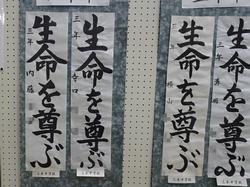 生命を尊ぶ
三年 内藤
生命を尊ぶ
三年 寺口
生命を尊ぶ
生命を尊ぶ
三年